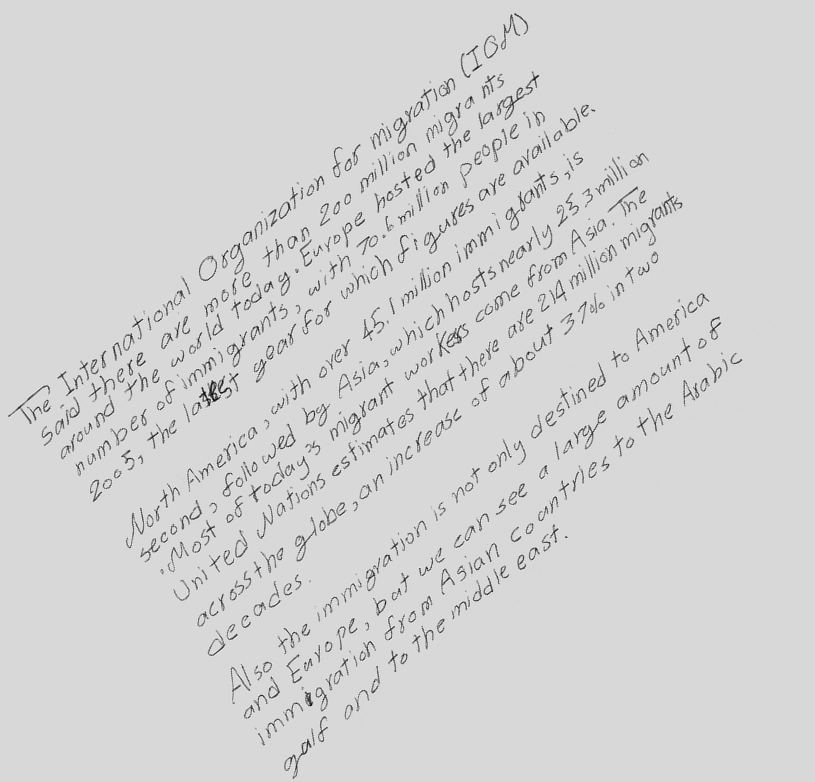 The International Organization for migration (IOM)
said there are more than 200 million migrants
around the world today. Europe hosted the largest
number of immigrants, with 70.6 million people in
2005, the latest year for which figures are available.
North America, with over 45.1 million immigrants, is
second, followed by Asia, which hosts nearly 25.3 million
. Most of today's migrant workers come from Asia. The
United Nations estimates that there are 214 million migrants
across the globe, an increase of about 37% in two
decades.
Also the immigration is not only destined to America
and Europe, but we can see a large amount of
immigration from Asian countries to the Arabic
gulf and to the middle east.